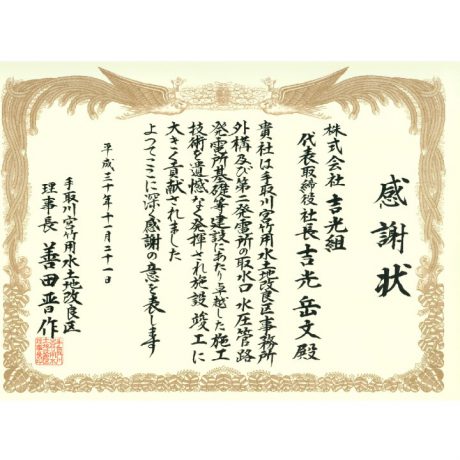 感謝状
株式会社 吉光組
代表取締役社長 吉光 岳文 殿
貴社は手取川宮竹用水土地改良区事務所
外構及び第二発電所の取水口 水圧管路
発電所基礎等建設にあたり卓越した施工
技術を遺憾なく発揮され施設竣工に
大きく貢献されました
よってここに深く感謝の意を表します
平成三十年十一月二十一日
手取川宮竹用水土地改良区
理事長 善田 晋作